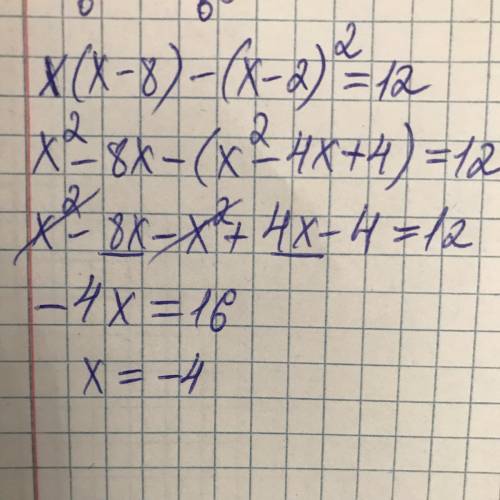 x(x-8)-(x-2)²=12
x²-8x-(x²-4x+4)=12
x²-8x-x²+4x-4=12
-4x=16
x=-4